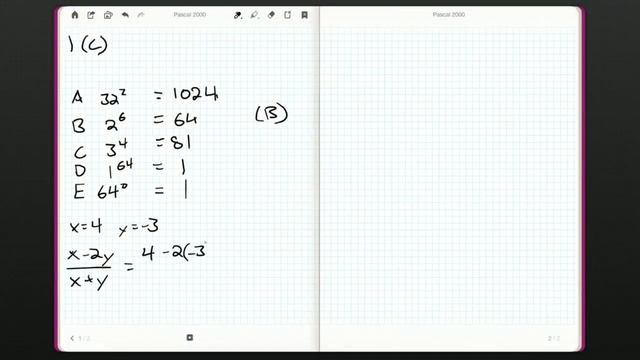 Pascal 2000
Pascal 2000
1 (C)
A 32² = 1024
B 2⁶ = 64 (B)
C 3⁴ = 81
D 1⁶⁴ = 1
E 64⁰ = 1
x=4 y=-3
x-2y = 4 -2(-3
x+y
1/2
2/2